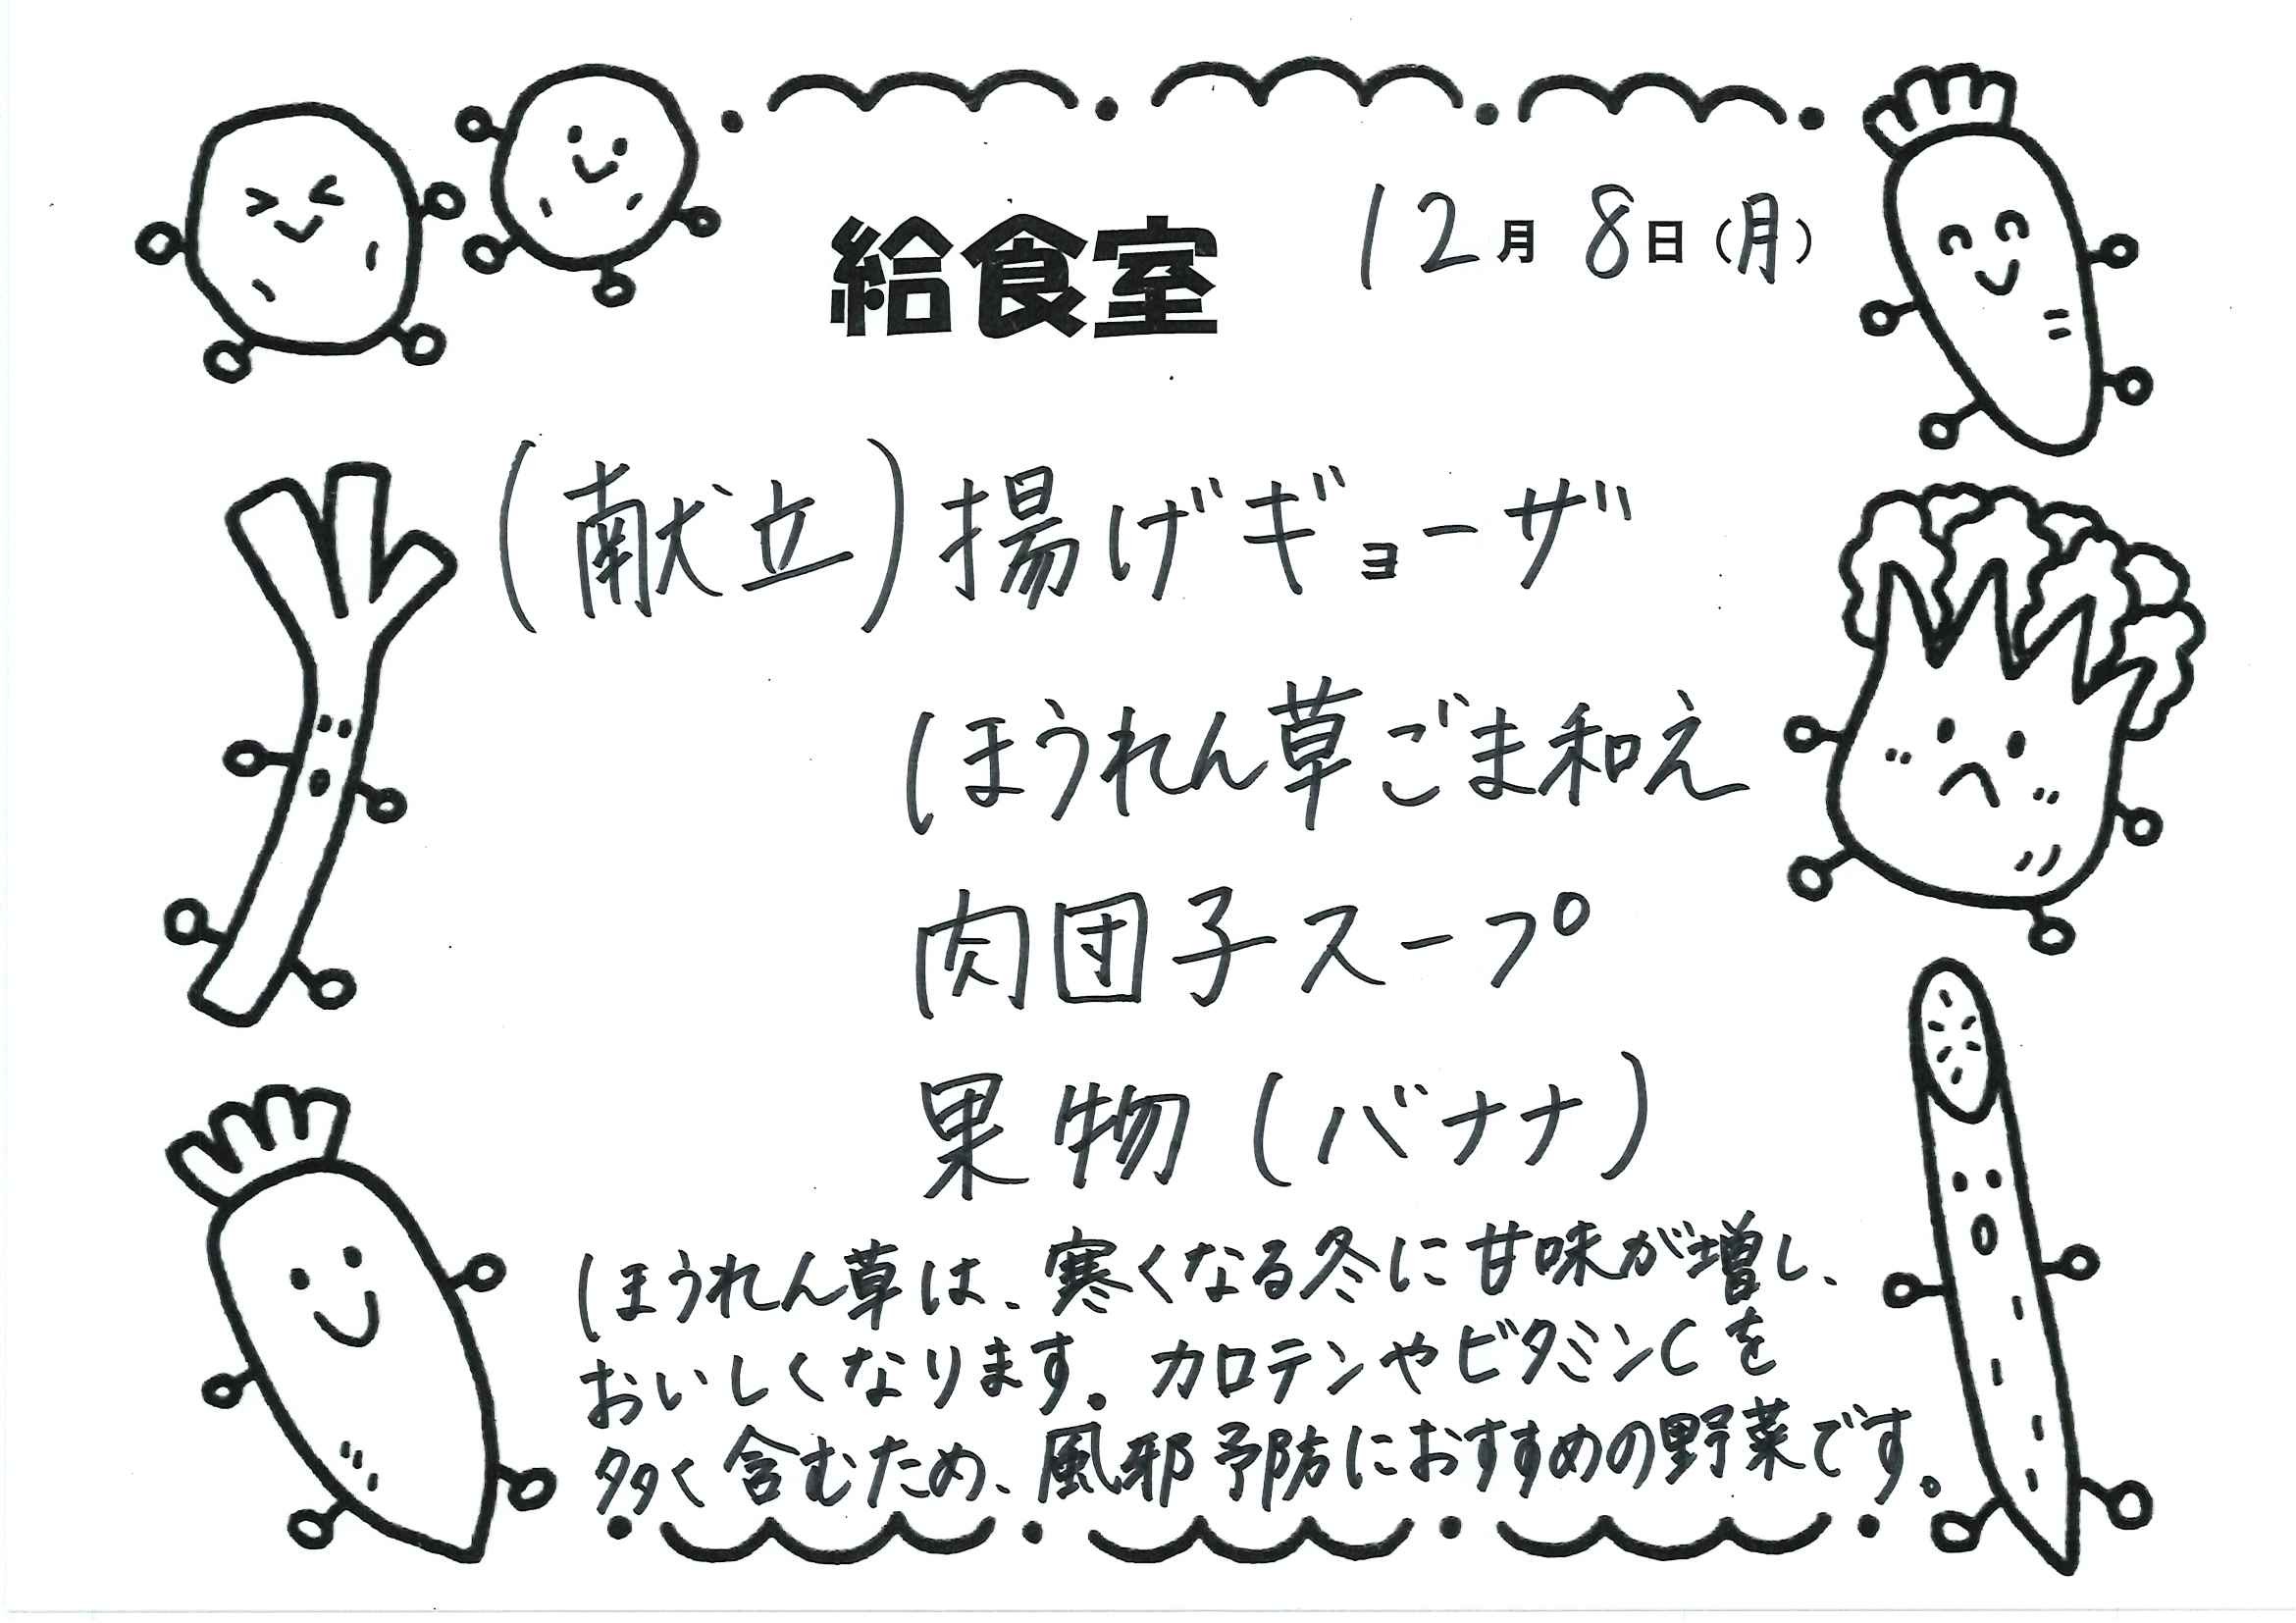 給食室 12月8日(月)
(献立)揚げギョーザ
ほうれん草ごま和え
肉団子スープ
果物(バナナ)
ほうれん草は、寒くなる冬に甘味が増し、
おいしくなります。カロテンやビタミンCを
多く含むため、風邪予防におすすめの野菜です。